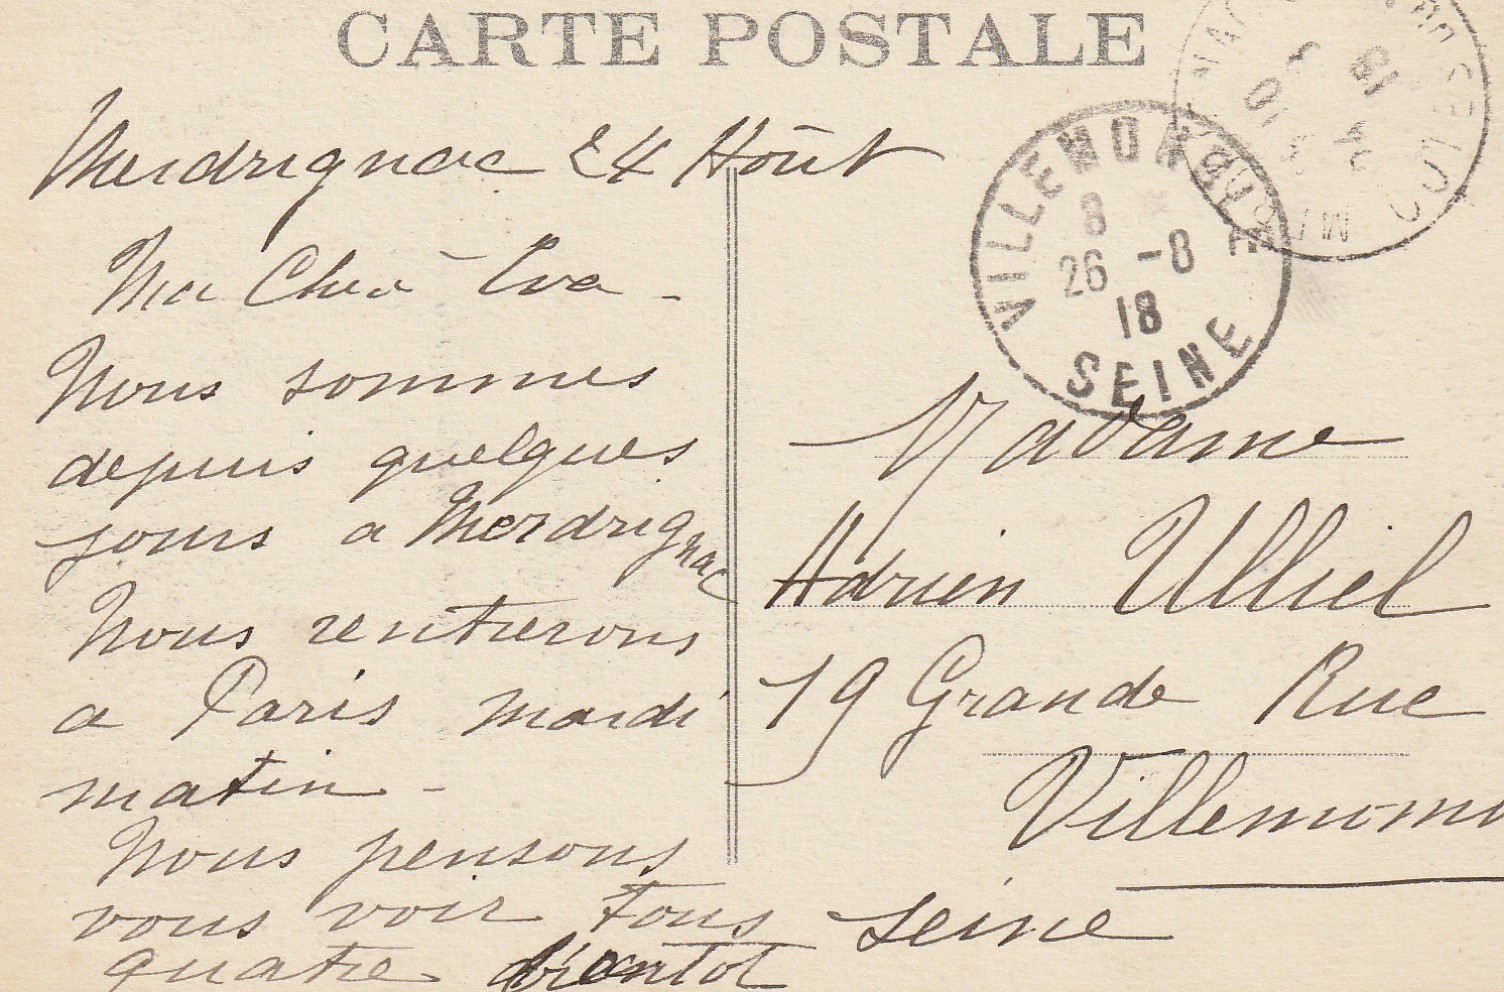 CARTE POSTALE
Merdrignac 24 Août
Ma Chère Eva -
Nous sommes
depuis quelques
jours a Merdrignac
Nous rentrerons
a Paris mardi
matin -
Nous pensons
vous voir tous
quatre bientot
VILLEMOMBLE
8
26 -8
18
SEINE
Madame
Adrien Ulliel
19 Grande Rue
Villemom
Seine